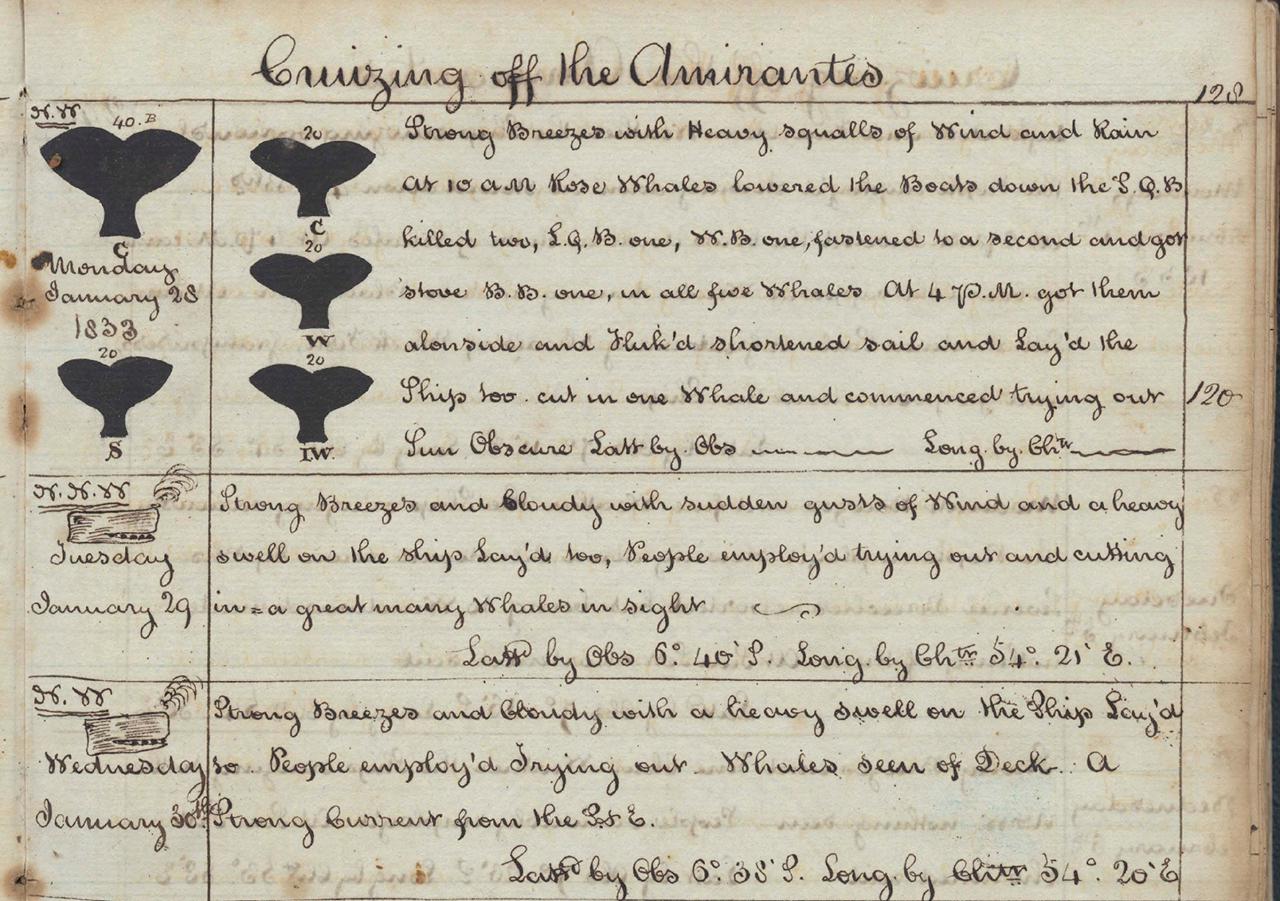 Cruizing off the Amirantes
128
N.W
40.B
C
Monday
January 28
1833
20
S
20
C
20
W
20
IW
Strong Breezes with Heavy squalls of Wind and Rain
At 10 AM Rose Whales lowered the Boats down the S.Q.B
killed two, L.Q.B. one, W.B. one, fastened to a second and got
stove B.B. one, in all five Whales At 4 P.M. got them
alonside and Fluk'd shortened sail and Lay'd the
Ship too cut in one Whale and commenced trying out
120
Sun Obscure Latt by Obs Long. by Chtr
N.N.W
Tuesday
January 29
Strong Breezes and Cloudy with sudden gusts of Wind and a heavy
swell on the ship Lay'd too, People employ'd trying out and cutting
in = a great many Whales in sight
Lattd by Obs 6° 40' S. Long. by Chtr 54°. 21' E.
N.W
Wednesday
January 30th
Strong Breezes and Cloudy with a heavy swell on the Ship Lay'd
to People employ'd Trying out Whales seen of Deck. A
Strong Current from the S & E.
Lattd by Obs 6°. 38' S. Long. by Chtr 54°. 20' E